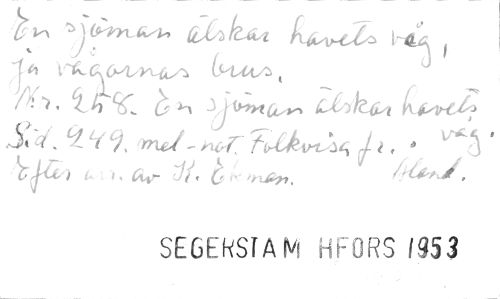 En sjöman älskar havets våg,
ja vågornas brus.
Nr. 258. En sjöman älskar havets
våg.
Sid. 249. mel-not. Folkvisa fr. Åland.
Efter arr. av K. Ekman.
SEGERSTAM HFORS 1953